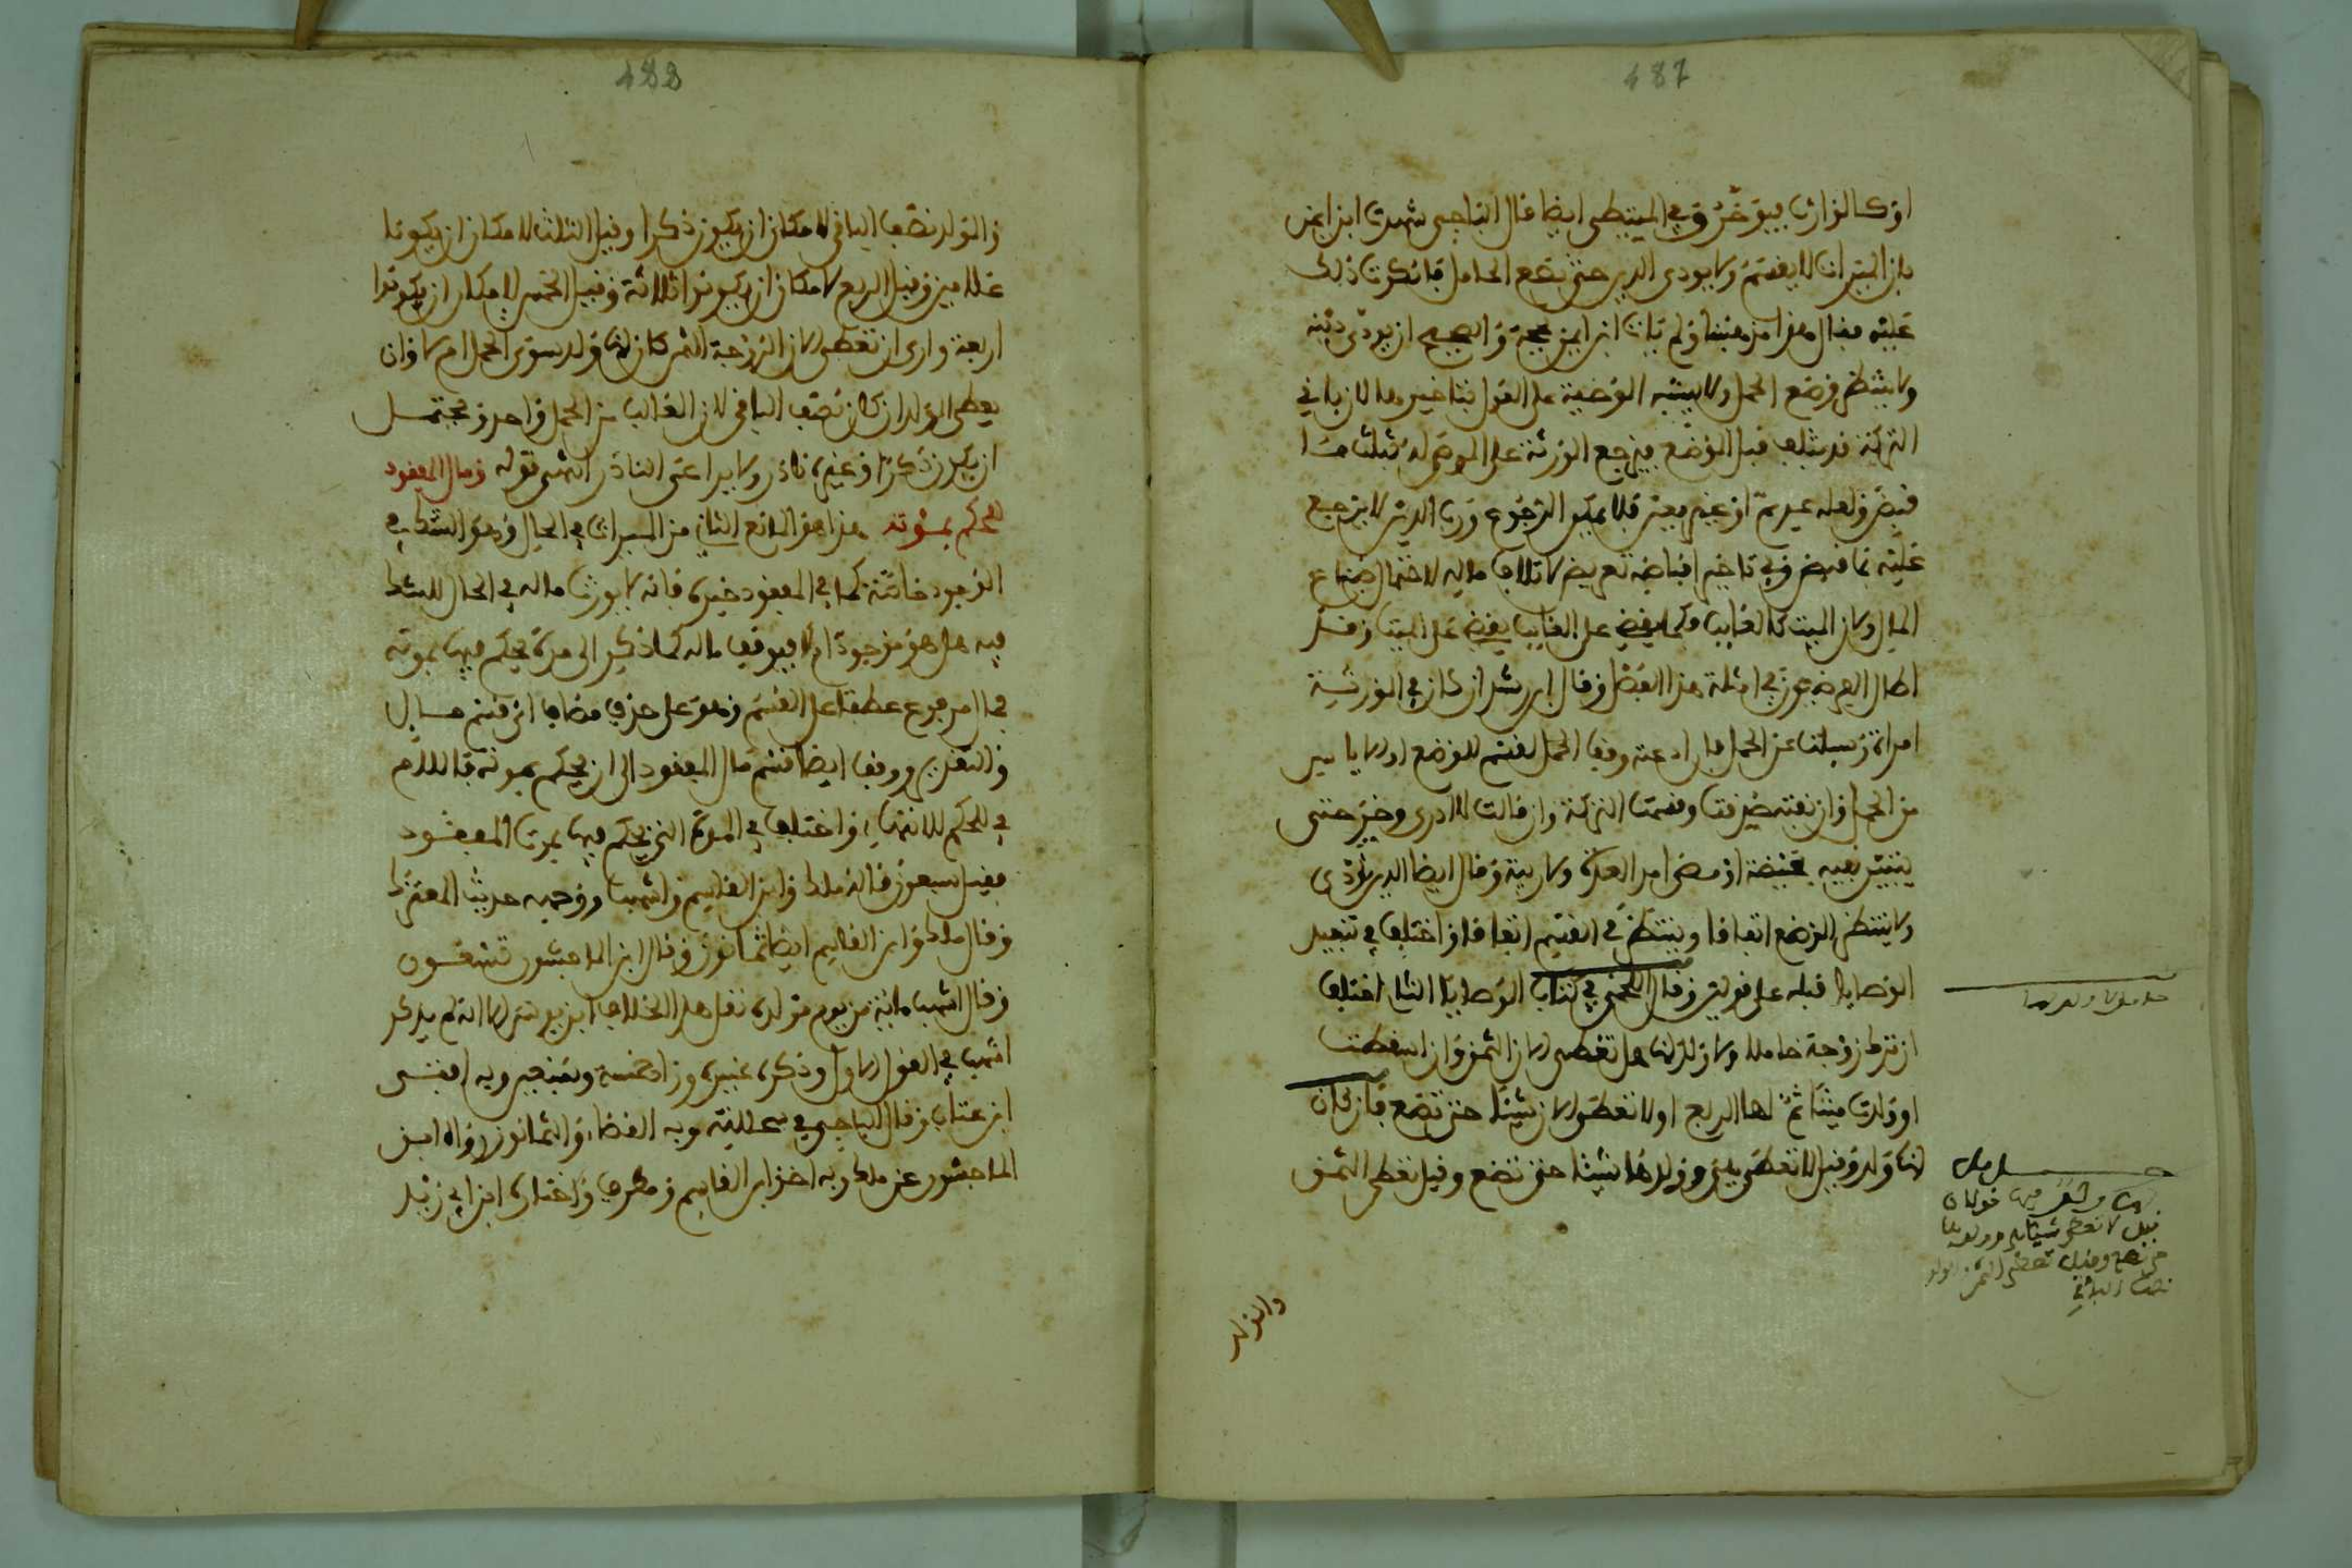 487
او كالوارث فيوخر وفي المتيطى ايضا قال الباجى شهدت ابن ايمن
بان الميراث لا يقسم ولا يودى الدين حتى تضع الحامل فانكرت ذلك
عليه فقال هذا مذهبنا ولم يات ابن ايمن بحجة والصحيح ان يودى دينه
ولا ينتظر وضع الحمل ولا يشبه الوصية على القول بتاخيرها لان باقي
التركة قد يتلف قبل الوضع فيرجع الورثة على الموصى له بثلثى ما
قبض ولعله عديم او غير معين فلا يمكن الرجوع ورب الدين لا يرجع
عليه بما قبض وفي تاخير اقباضه تعريض لاتلاف ماله لاحتمال ضياع
المال ولان الميت كالغايب فكما يقضى على الغايب يقضى على الميت وقد
اطال ابن عرفة في امثلة هذا وقال ابن رشد ان كان في الورثة
امراة سيلت عن الحمل فان ادعته وقف الحمل للقسم للوضع او الاياس
من الحمل وان نفته صدقت وقسمت التركة وان قالت لا ادرى وخر حتى
يتبين نفيه بحيضة او مضى امد العدة ولا ريبة وقال ايضا الدين يودى
ولا ينتظر الوضع اتفاقا وينتظر في القسم اتفاقا واختلف في تنفيذ
الوصايا قبله على قولين وقال اللخمى في كتاب الوصايا الثاني اختلف
ان ترك زوجة حاملا ولا ولد لها هل تعطى الان الثمن وان اسقطت
او ولدت ميتا ثم لها الربع او لا تعطى الان شيئا حتى تضع فان كان
لها ولد وقيل لا تعطى هى وولدها شيئا حتى تضع وقيل تعطى الثمن
حاملا ولا ولد لها
قولان
قيل لا تعطى شيئا هى وولدها
حتى تضع وقيل تعطى الثمن والولد
نصف الباقي
والولد
488
والولد نصف الباقي لامكان ان يكون ذكرا وقيل الثلث لامكان ان يكونا
غلامين وقيل الربع لامكان ان يكونوا ثلاثة وقيل الخمس لامكان ان يكونوا
اربعة وارى ان تعطى الان الزوجة الثمن كان لها ولد سوى الحمل ام لا وان
يعطى الولد ان كان نصف الباقي لان الغالب من الحمل واحد ومحتمل
ان يكون ذكرا وغيره نادر ولا يراعى النادر انتهى قوله ومال المفقود
للحكم بموته هذا هو المانع الثاني من الميراث في الحال وهو الشك في
الوجود خاتمة كما في المفقود خبره فانه لا يورث ماله في الحال للشك
فيه هل هو موجود ام لا فيوقف ماله كما ذكر الى مدة يحكم فيها بموته
فمال مرفوع عطفا على القسم وهو على حذف مضاف اى قسم مال
والتقدير ووقف ايضا قسم مال المفقود الى ان يحكم بموته فاللام
في للحكم للانتهاء واختلف في المدة التي يحكم فيها بموت المفقود
فقيل سبعون قاله ملك وابن القاسم واشهب ووجهه حديث المعترك
وقال ملك وابن القاسم ايضا ثمانون وقال ابن الماجشون تسعون
وقال اشهب مائة من يوم مولده نقل هذا الخلاف ابن يونس الا انه لم يذكر
اشهب في القول الاول وذكره غيره وزاد خمسة وسبعين وبه افتى
ابن عتاب وقال الباجى في سجلاته وبه القضاء والثمانون رواه ابن
الماجشون عن ملك وبه اخذ ابن القاسم ومطرف واختاره ابن ابي زيد